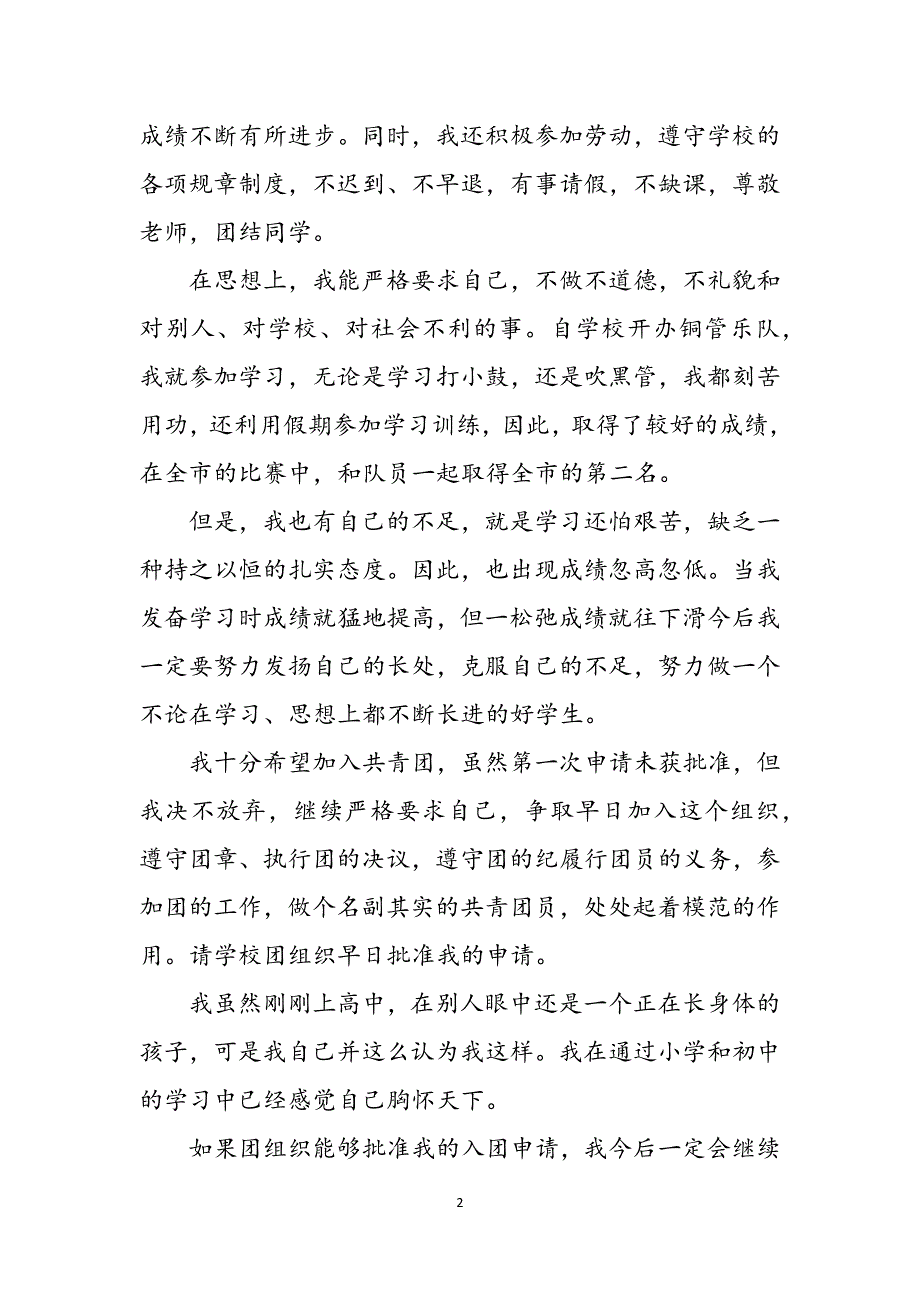 成绩不断有所进步。同时，我还积极参加劳动，遵守学校的
各项规章制度，不迟到、不早退，有事请假，不缺课，尊敬
老师，团结同学。
在思想上，我能严格要求自己，不做不道德，不礼貌和
对别人、对学校、对社会不利的事。自学校开办铜管乐队，
我就参加学习，无论是学习打小鼓，还是吹黑管，我都刻苦
用功，还利用假期参加学习训练，因此，取得了较好的成绩，
在全市的比赛中，和队员一起取得全市的第二名。
但是，我也有自己的不足，就是学习还怕艰苦，缺乏一
种持之以恒的扎实态度。因此，也出现成绩忽高忽低。当我
发奋学习时成绩就猛地提高，但一松弛成绩就往下滑今后我
一定要努力发扬自己的长处，克服自己的不足，努力做一个
不论在学习、思想上都不断长进的好学生。
我十分希望加入共青团，虽然第一次申请未获批准，但
我决不放弃，继续严格要求自己，争取早日加入这个组织，
遵守团章、执行团的决议，遵守团的纪履行团员的义务，参
加团的工作，做个名副其实的共青团员，处处起着模范的作
用。请学校团组织早日批准我的申请。
我虽然刚刚上高中，在别人眼中还是一个正在长身体的
孩子，可是我自己并这么认为我这样。我在通过小学和初中
的学习中已经感觉自己胸怀天下。
如果团组织能够批准我的入团申请，我今后一定会继续
2